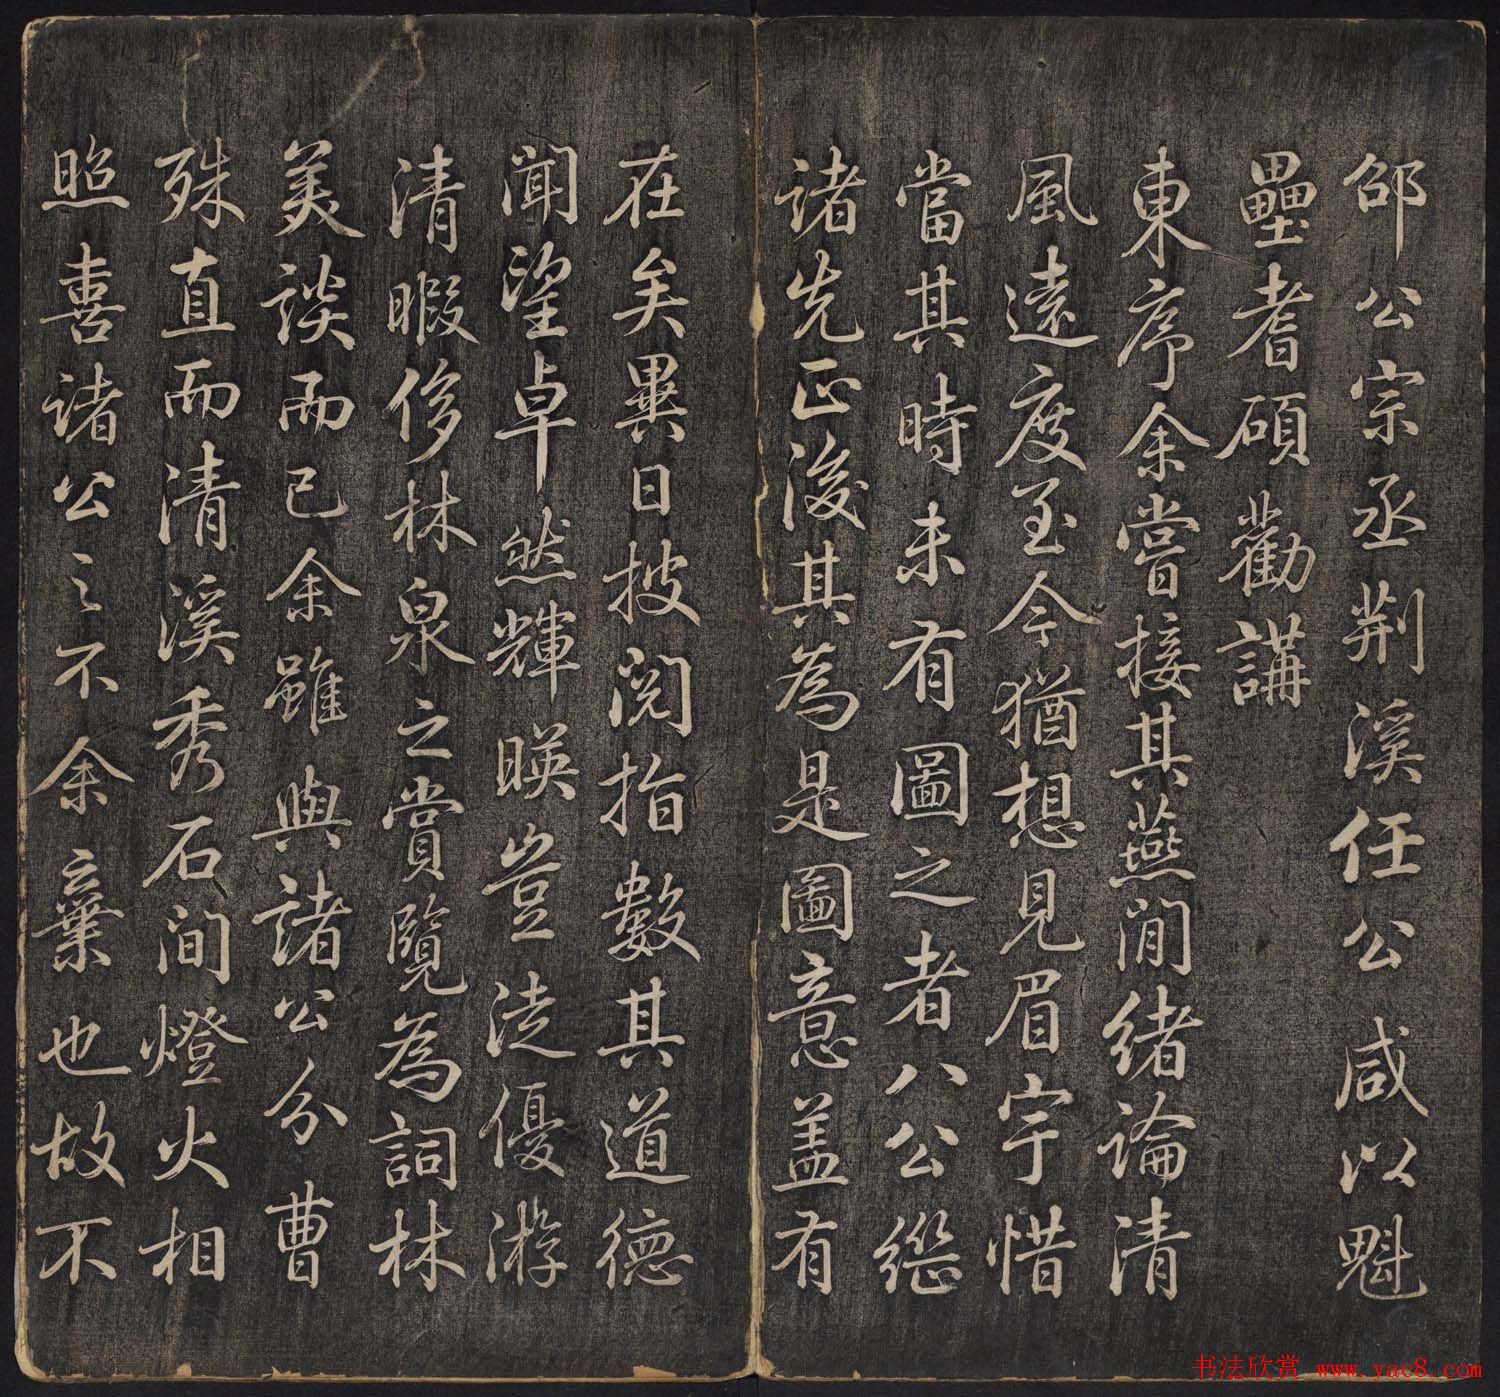 邵公宗丞荊溪任公咸以魁
壘耆碩勸講
東序余嘗接其燕閒緒論清
風遠度至今猶想見眉宇惜
當其時未有圖之者八公繼
諸先正後其為是圖意盖有
在矣異日披閱指數其道德
聞望卓然輝暎豈徒優游
清暇侈林泉之賞覽為詞林
美談而已余雖與諸公分曹
殊直而清溪秀石間燈火相
照喜諸公之不余棄也故不
书法欣赏 www.yac8.com